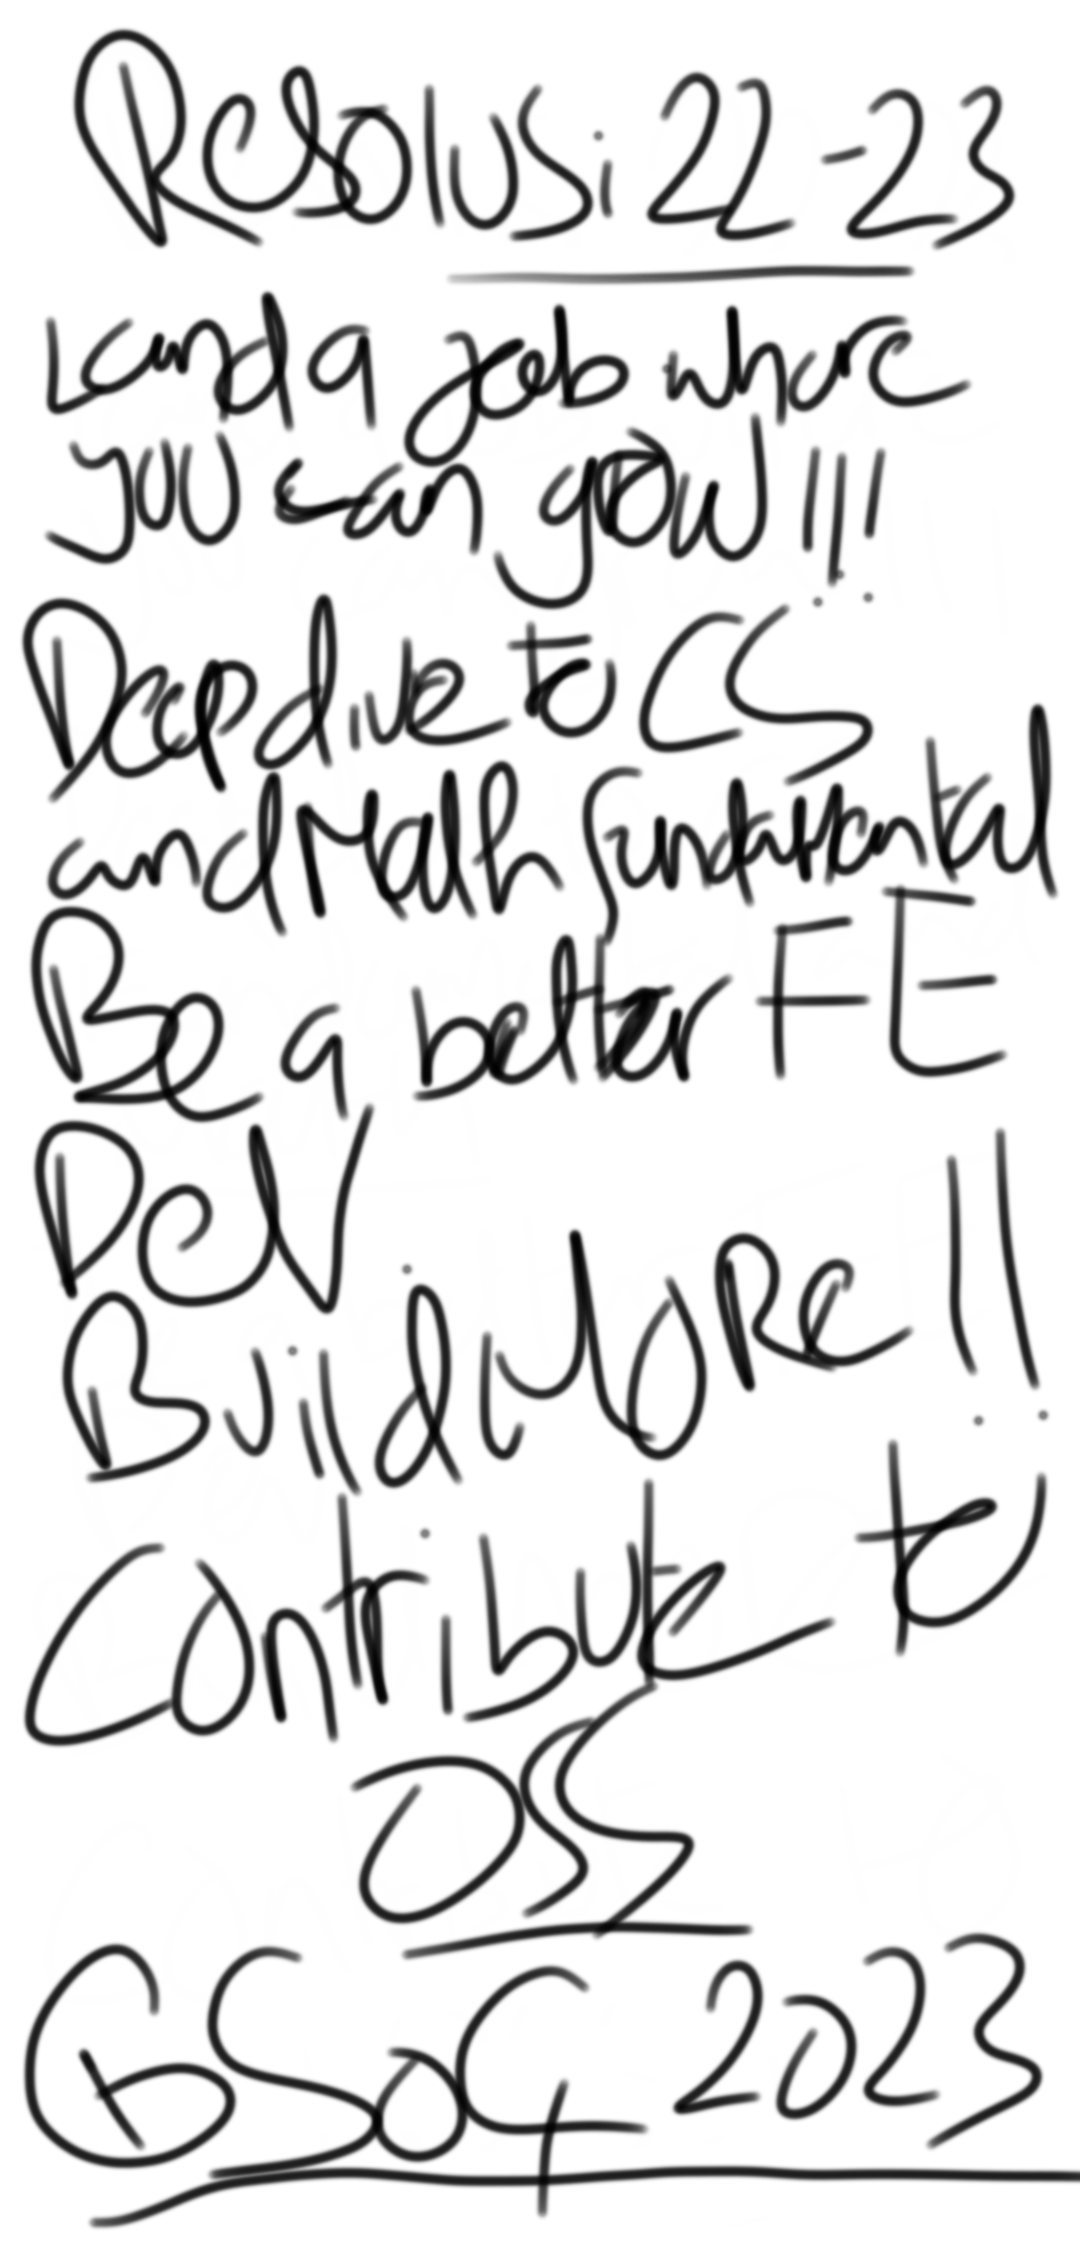 Resolusi 22-23
Land a job where
you can grow !!!
Deep dive to CS
and Math fundamental
Be a better FE
Dev.
Build More !!
Contribute to
OSS
GSoC 2023